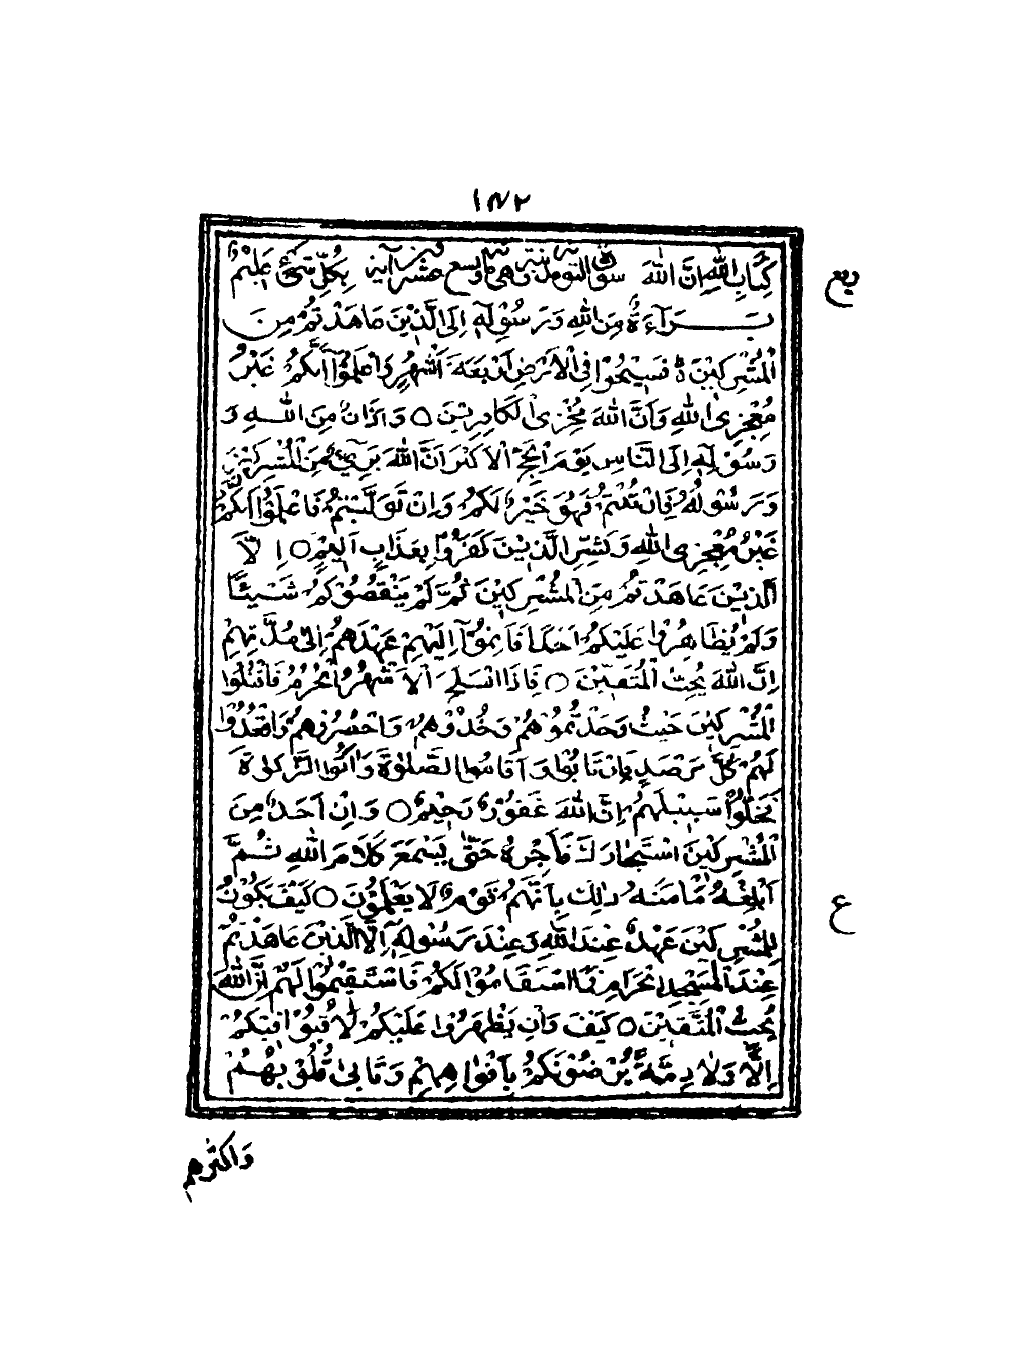 ١٨٢
كِتَابِ اللّٰهِ اِنَّ اللّٰهَ سورة التوبة مدنية وهي مائة وتسع عشرون آية بِكُلِّ شَيْءٍ عَلِيْمٌ
ربع
بَرَآءَةٌ مِنَ اللّٰهِ وَرَسُوْلِهٖ اِلَى الَّذِيْنَ عَاهَدْتُمْ مِنَ
الْمُشْرِكِيْنَ ○ فَسِيْحُوْا فِى الْاَرْضِ اَرْبَعَةَ اَشْهُرٍ وَاعْلَمُوْا اَنَّكُمْ غَيْرُ
مُعْجِزِى اللّٰهِ وَاَنَّ اللّٰهَ مُخْزِى الْكَافِرِيْنَ ○ وَاَذَانٌ مِنَ اللّٰهِ وَ
رَسُوْلِهٖ اِلَى النَّاسِ يَوْمَ الْحَجِّ الْاَكْبَرِ اَنَّ اللّٰهَ بَرِيْءٌ مِنَ الْمُشْرِكِيْنَ
وَرَسُوْلُهٗ فَاِنْ تُبْتُمْ فَهُوَ خَيْرٌ لَكُمْ وَاِنْ تَوَلَّيْتُمْ فَاعْلَمُوْا اَنَّكُمْ
غَيْرُ مُعْجِزِى اللّٰهِ وَبَشِّرِ الَّذِيْنَ كَفَرُوْا بِعَذَابٍ اَلِيْمٍ ○ اِلَّا
الَّذِيْنَ عَاهَدْتُمْ مِنَ الْمُشْرِكِيْنَ ثُمَّ لَمْ يَنْقُصُوْكُمْ شَيْئًا
وَلَمْ يُظَاهِرُوْا عَلَيْكُمْ اَحَدًا فَاَتِمُّوْآ اِلَيْهِمْ عَهْدَهُمْ اِلٰى مُدَّتِهِمْ
اِنَّ اللّٰهَ يُحِبُّ الْمُتَّقِيْنَ ○ فَاِذَا انْسَلَخَ الْاَشْهُرُ الْحُرُمُ فَاقْتُلُوا
الْمُشْرِكِيْنَ حَيْثُ وَجَدْتُمُوْهُمْ وَخُذُوْهُمْ وَاحْصُرُوْهُمْ وَاقْعُدُوْا
لَهُمْ كُلَّ مَرْصَدٍ فَاِنْ تَابُوْا وَاَقَامُوا الصَّلٰوةَ وَاٰتَوُا الزَّكٰوةَ
فَخَلُّوْا سَبِيْلَهُمْ اِنَّ اللّٰهَ غَفُوْرٌ رَحِيْمٌ ○ وَاِنْ اَحَدٌ مِنَ
الْمُشْرِكِيْنَ اسْتَجَارَكَ فَاَجِرْهُ حَتّٰى يَسْمَعَ كَلَامَ اللّٰهِ ثُمَّ
اَبْلِغْهُ مَاْمَنَهٗ ذٰلِكَ بِاَنَّهُمْ قَوْمٌ لَا يَعْلَمُوْنَ ○ كَيْفَ يَكُوْنُ
ع
لِلْمُشْرِكِيْنَ عَهْدٌ عِنْدَ اللّٰهِ وَعِنْدَ رَسُوْلِهٖٓ اِلَّا الَّذِيْنَ عَاهَدْتُمْ
عِنْدَ الْمَسْجِدِ الْحَرَامِ فَمَا اسْتَقَامُوْا لَكُمْ فَاسْتَقِيْمُوْا لَهُمْ اِنَّ اللّٰهَ
يُحِبُّ الْمُتَّقِيْنَ ○ كَيْفَ وَاِنْ يَظْهَرُوْا عَلَيْكُمْ لَا يَرْقُبُوْا فِيْكُمْ
اِلًّا وَلَا ذِمَّةً يُرْضُوْنَكُمْ بِاَفْوَاهِهِمْ وَتَابٰى قُلُوْبُهُمْ
واكثرهم